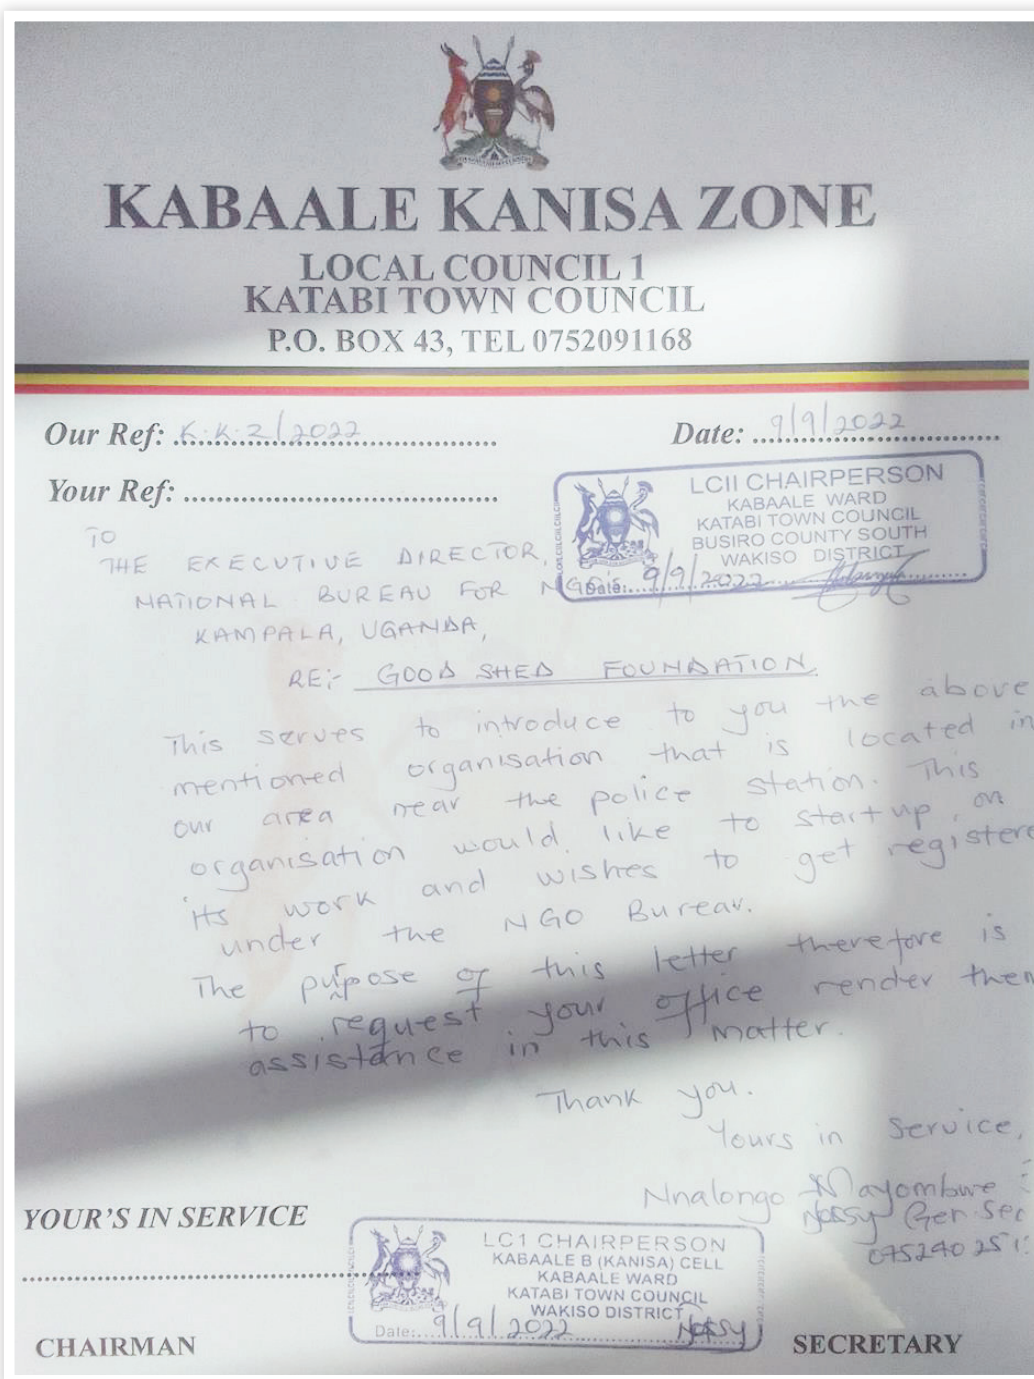 KABAALE KANISA ZONE
LOCAL COUNCIL 1
KATABI TOWN COUNCIL
P.O. BOX 43, TEL 0752091168
Our Ref: K.K.Z/2022
Date: 9/9/2022
Your Ref:
LCII CHAIRPERSON
KABAALE WARD
KATABI TOWN COUNCIL
BUSIRO COUNTY SOUTH
WAKISO DISTRICT
Date: 9/9/2022
TO
THE EXECUTIVE DIRECTOR,
NATIONAL BUREAU FOR NGO's
KAMPALA, UGANDA,
RE:- GOOD SHED FOUNDATION
This serves to introduce to you the above
mentioned organisation that is located in
our area near the police station. This
organisation would like to start up on
its work and wishes to get registere
under the NGO Bureau.
The purpose of this letter therefore is
to request your office render them
assistance in this matter.
Thank you.
Yours in Service,
Nnalongo Mayombwe
Gen. Sec
YOUR'S IN SERVICE
LC1 CHAIRPERSON
KABAALE B (KANISA) CELL
KABAALE WARD
KATABI TOWN COUNCIL
WAKISO DISTRICT
Date: 9/9/2022
CHAIRMAN
SECRETARY